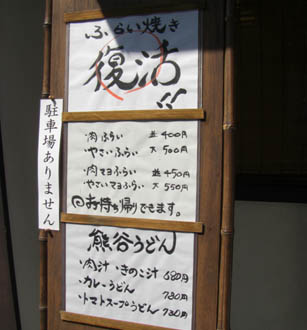 ふらい焼き
復活
駐車場ありません
・肉ふらい 並400円
・やさいふらい 大500円
・肉マヨふらい 並450円
・やさいマヨふらい 大550円
◎お持ち帰りできます。
熊谷うどん
・肉汁・きのこ汁 680円
・カレーうどん 730円
・トマトスープうどん 730円